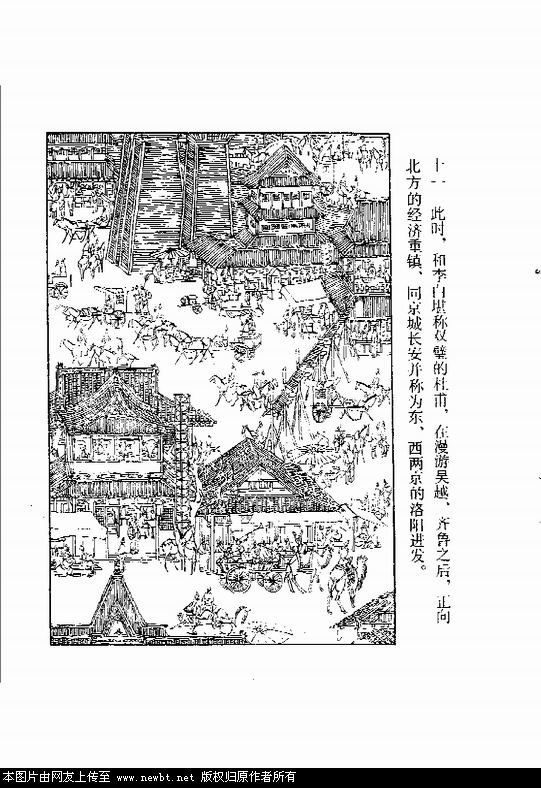 十一 此时，和李白堪称双璧的杜甫，在漫游吴越、齐鲁之后，正向
北方的经济重镇、同京城长安并称为东、西两京的洛阳进发。
本图片由网友上传至 www.newbt.net 版权归原作者所有